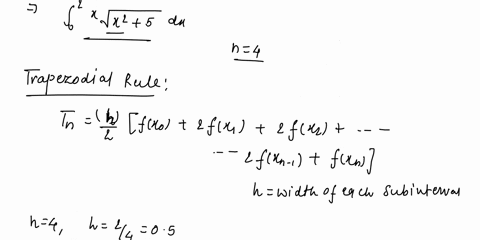 ⇒ ∫₀² x √(x² + 5) dx
n = 4
Trapezodial Rule:
Tn = (h)/2 [f(x₀) + 2f(x₁) + 2f(x₂) + ---
--- 2f(xn-1) + f(xn)]
h = width of each subinterval
n=4, h = 2/4 = 0.5